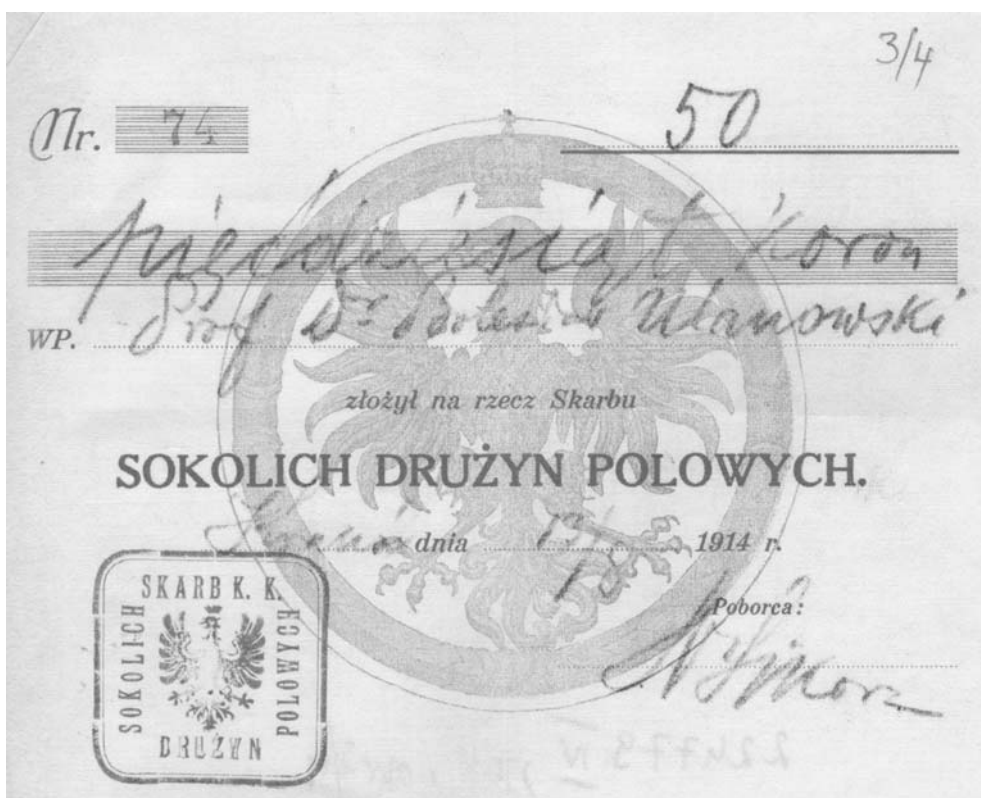 3/4
Nr. 74 50
pięćdziesiąt koron
WP. Prof Dr Bolesław Ulanowski
złożył na rzecz Skarbu
SOKOLICH DRUŻYN POLOWYCH.
Kraków dnia 1914 r.
Poborca:
SKARB K. K.
SOKOLICH
POLOWYCH
DRUŻYN